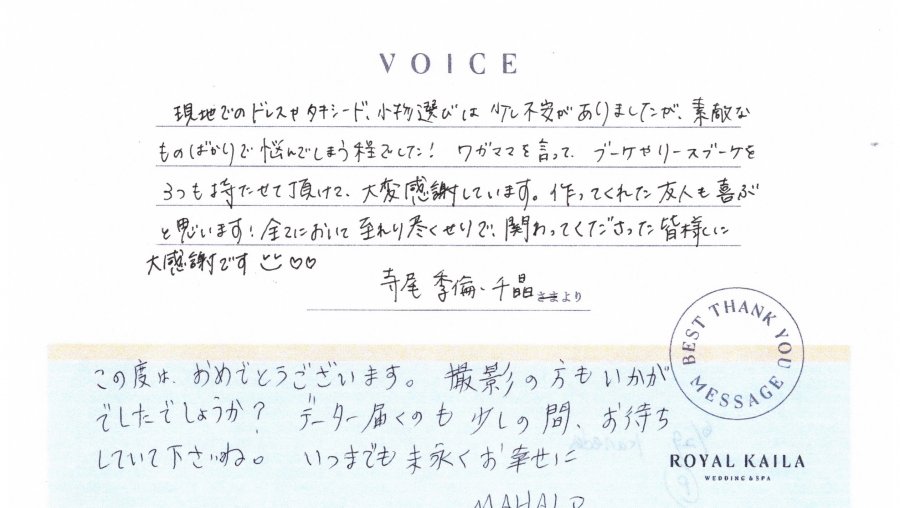 VOICE
現地でのドレスやタキシード、小物選びは少し不安がありましたが、素敵な
ものばかりで悩んでしまう程でした！ワガママを言って、ブーケやリースブーケを
3つも持たせて頂けて、大変感謝しています。作ってくれた友人も喜ぶ
と思います！全てにおいて至れり尽くせりで、関わってくださった皆様に
大感謝です
寺尾 季倫・千晶さまより
BEST THANK YOU MESSAGE
この度は、おめでとうございます。撮影の方もいかが
でしたでしょうか？データー届くのも少しの間、お待ち
していて下さいね。いつまでも末永くお幸せに
ROYAL KAILA
WEDDING & SPA
MAHALO